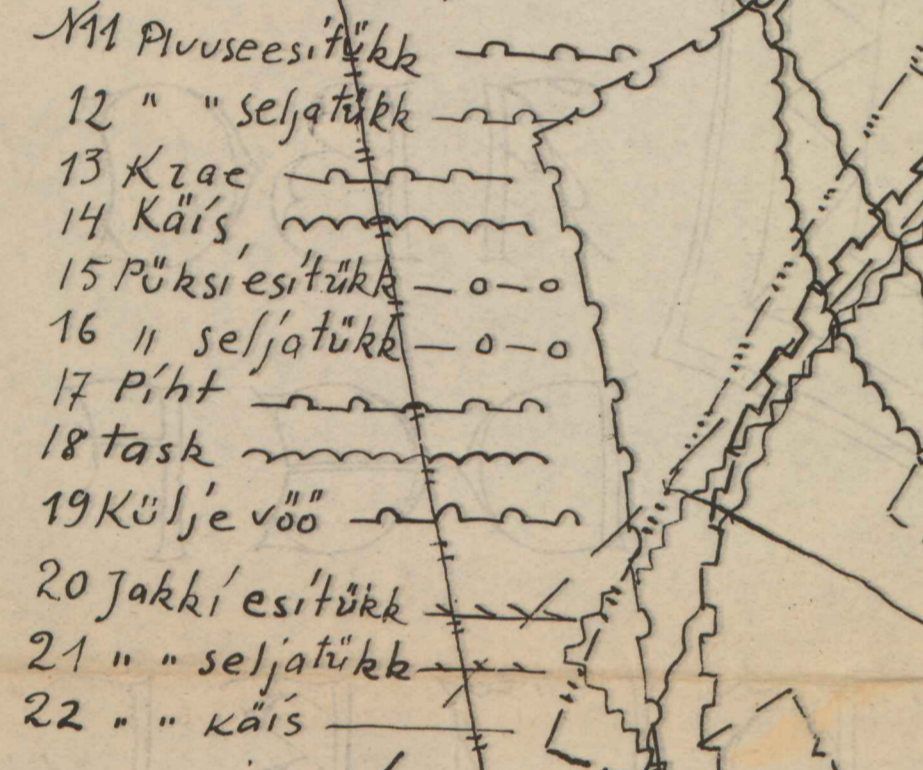 N11 Pluuseesitükk
12 " " seljatükk
13 Krae
14 Käis
15 Püksi esitükk
16 " seljatükk
17 Piht
18 Task
19 Külje vöö
20 Jakki esitükk
21 " " seljatükk
22 " " käis